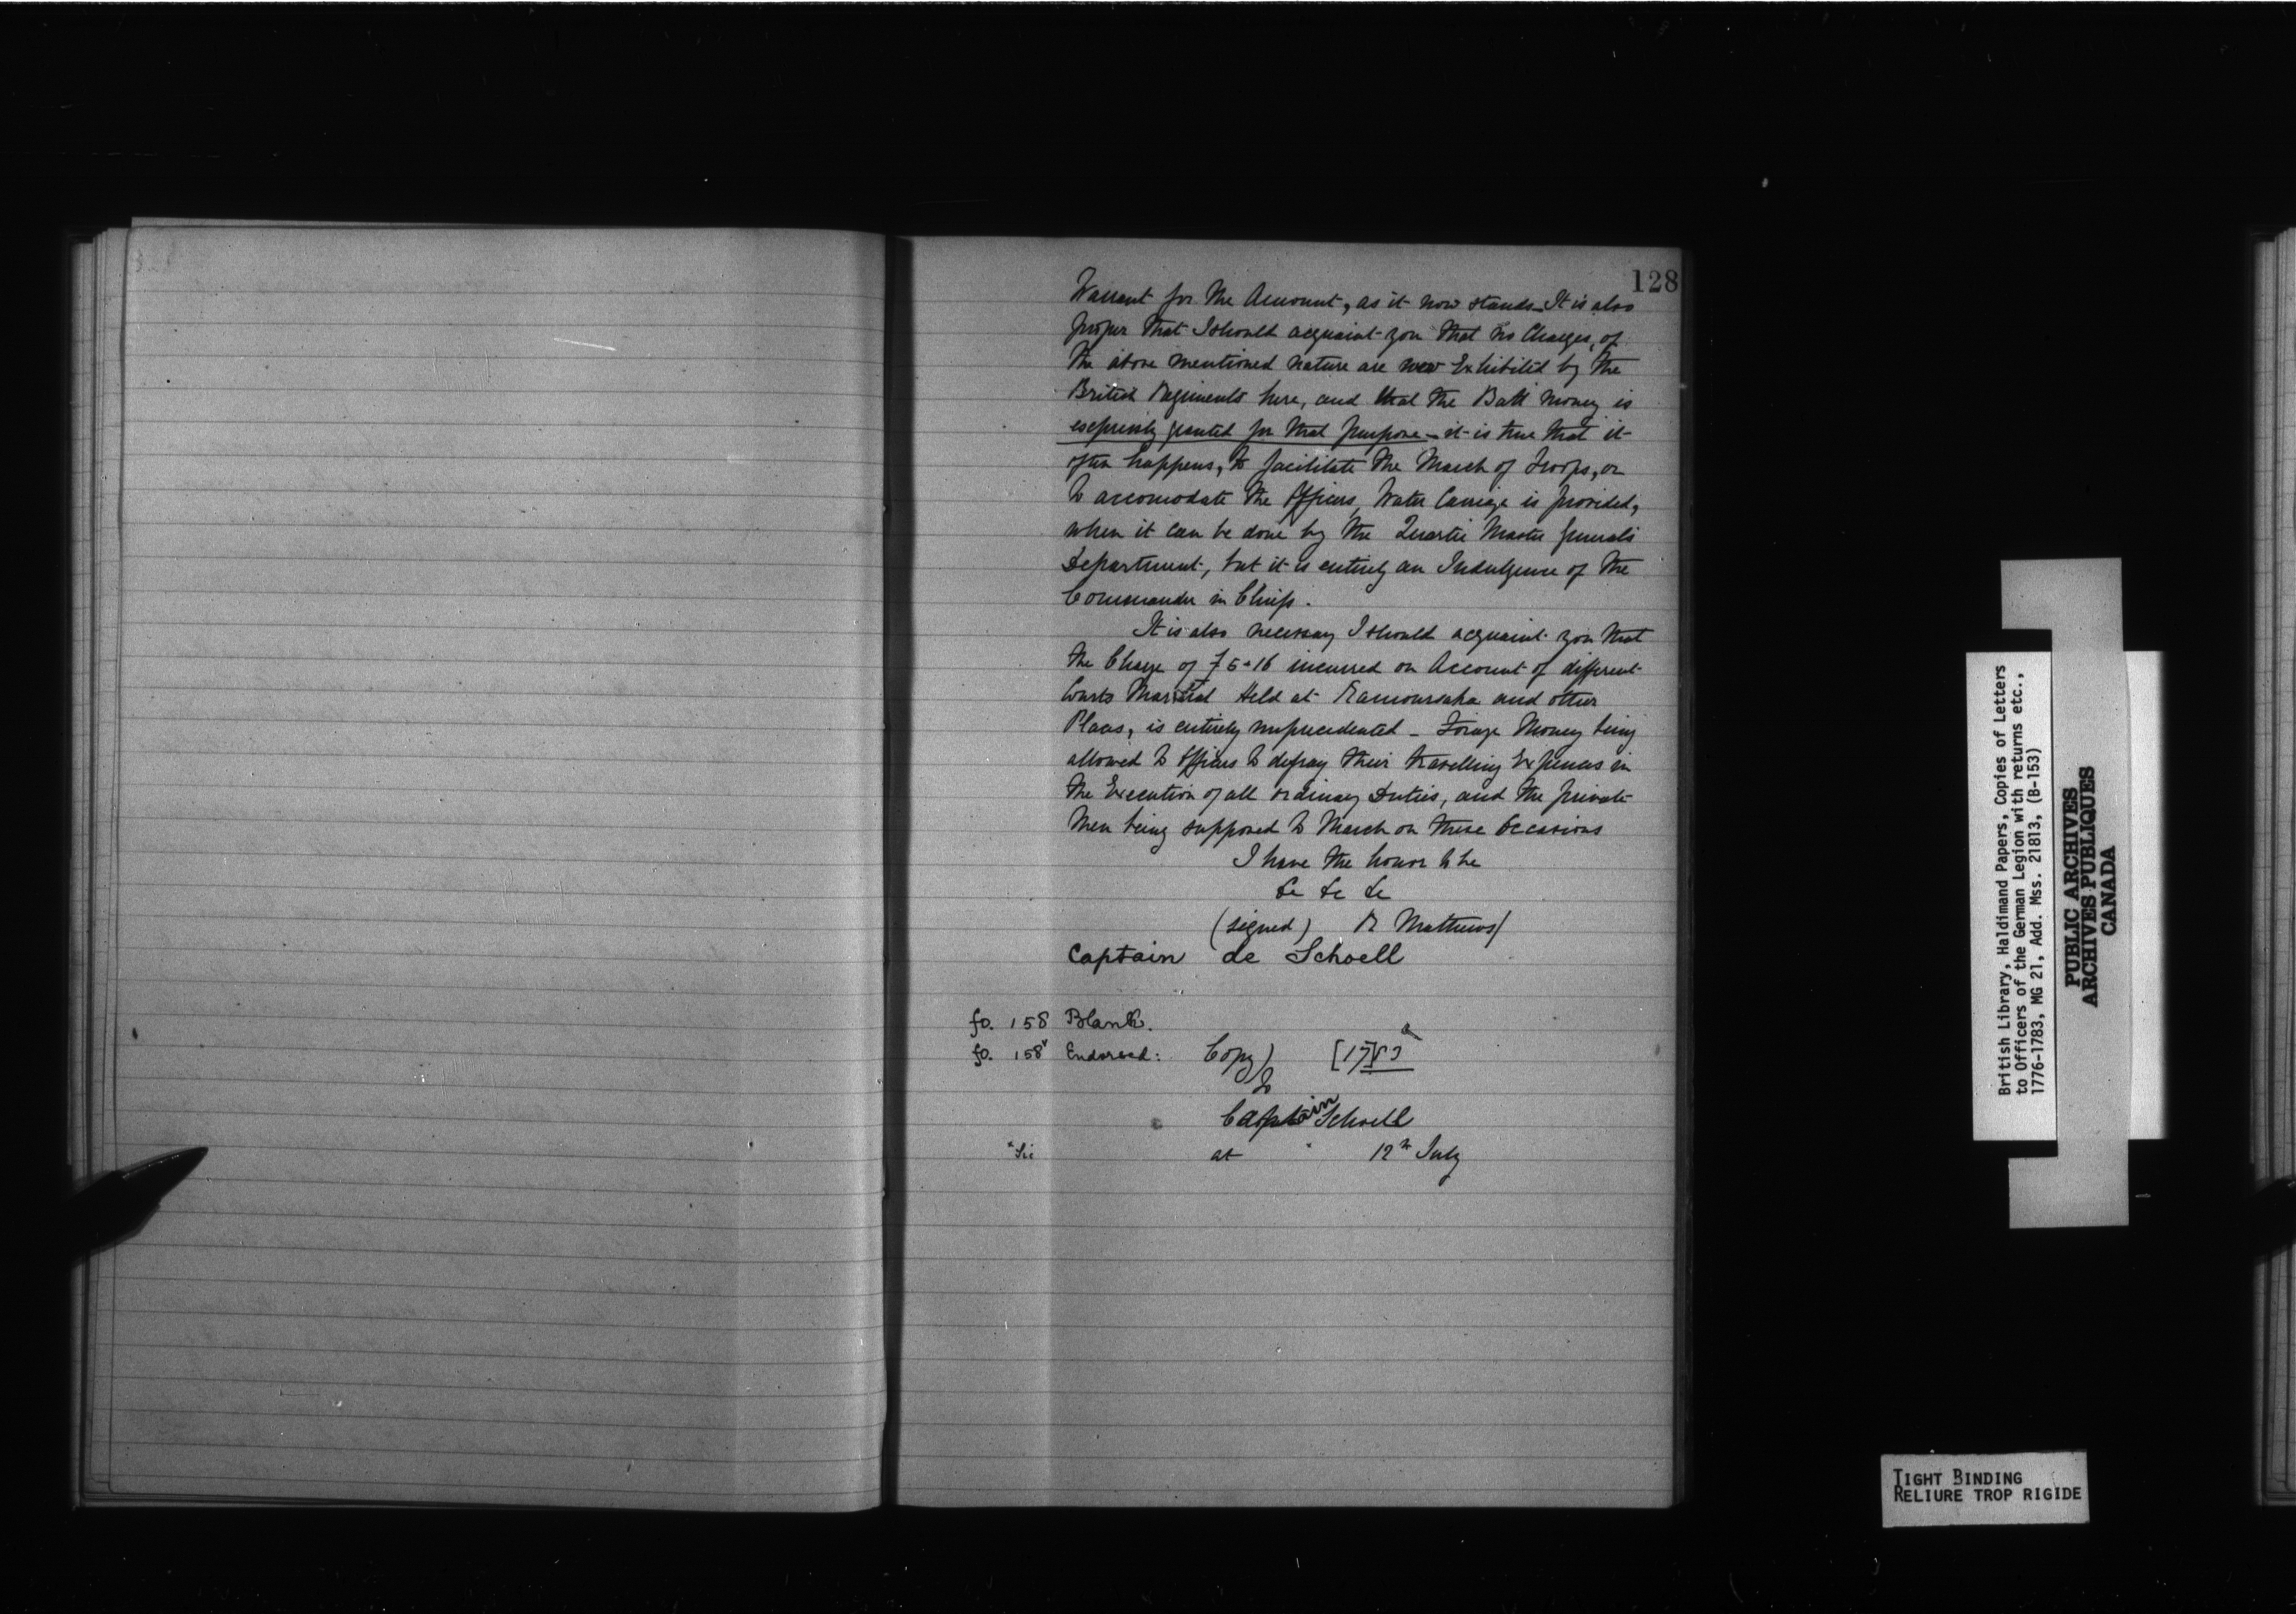 128
Warrant for the Amount, as it now stands_ It is also
proper that I should acquaint you that no Charges, of
the above mentioned nature are now Exhibited by the
British Regiments here, and that the Batt Money is
expressly granted for that purpose_ it is true that it
often happens, to facilitate the March of Troops, or
to accomodate the Officers, Water Carriage is provided,
when it can be done by the Quarter Master General's
Department, but it is entirely an Indulgence of the
Commander in Chief.
It is also necessary I should acquaint you that
the Charge of £5"16 incurred on Account of different
Courts Martial Held at Kamouraska and other
Places, is entirely unprecedented _ Forage Money being
allowed to Officers to defray their travelling Expences in
the Execution of all ordinary Duties, and the private
Men being supposed to March on these Occasions
I have the honor to be
&c &c &c
(signed) R Mathews/
Captain de Schoell
fo. 158 Blank.
fo. 158v Endorsed: Copy) [17]83 a
To
Captain Schoell
"Sic at " 12th July
British Library, Haldimand Papers, Copies of Letters
to Officers of the German Legion with returns etc.,
1776-1783, MG 21, Add. Mss. 21813, (B-153)
PUBLIC ARCHIVES
ARCHIVES PUBLIQUES
CANADA
TIGHT BINDING
RELIURE TROP RIGIDE